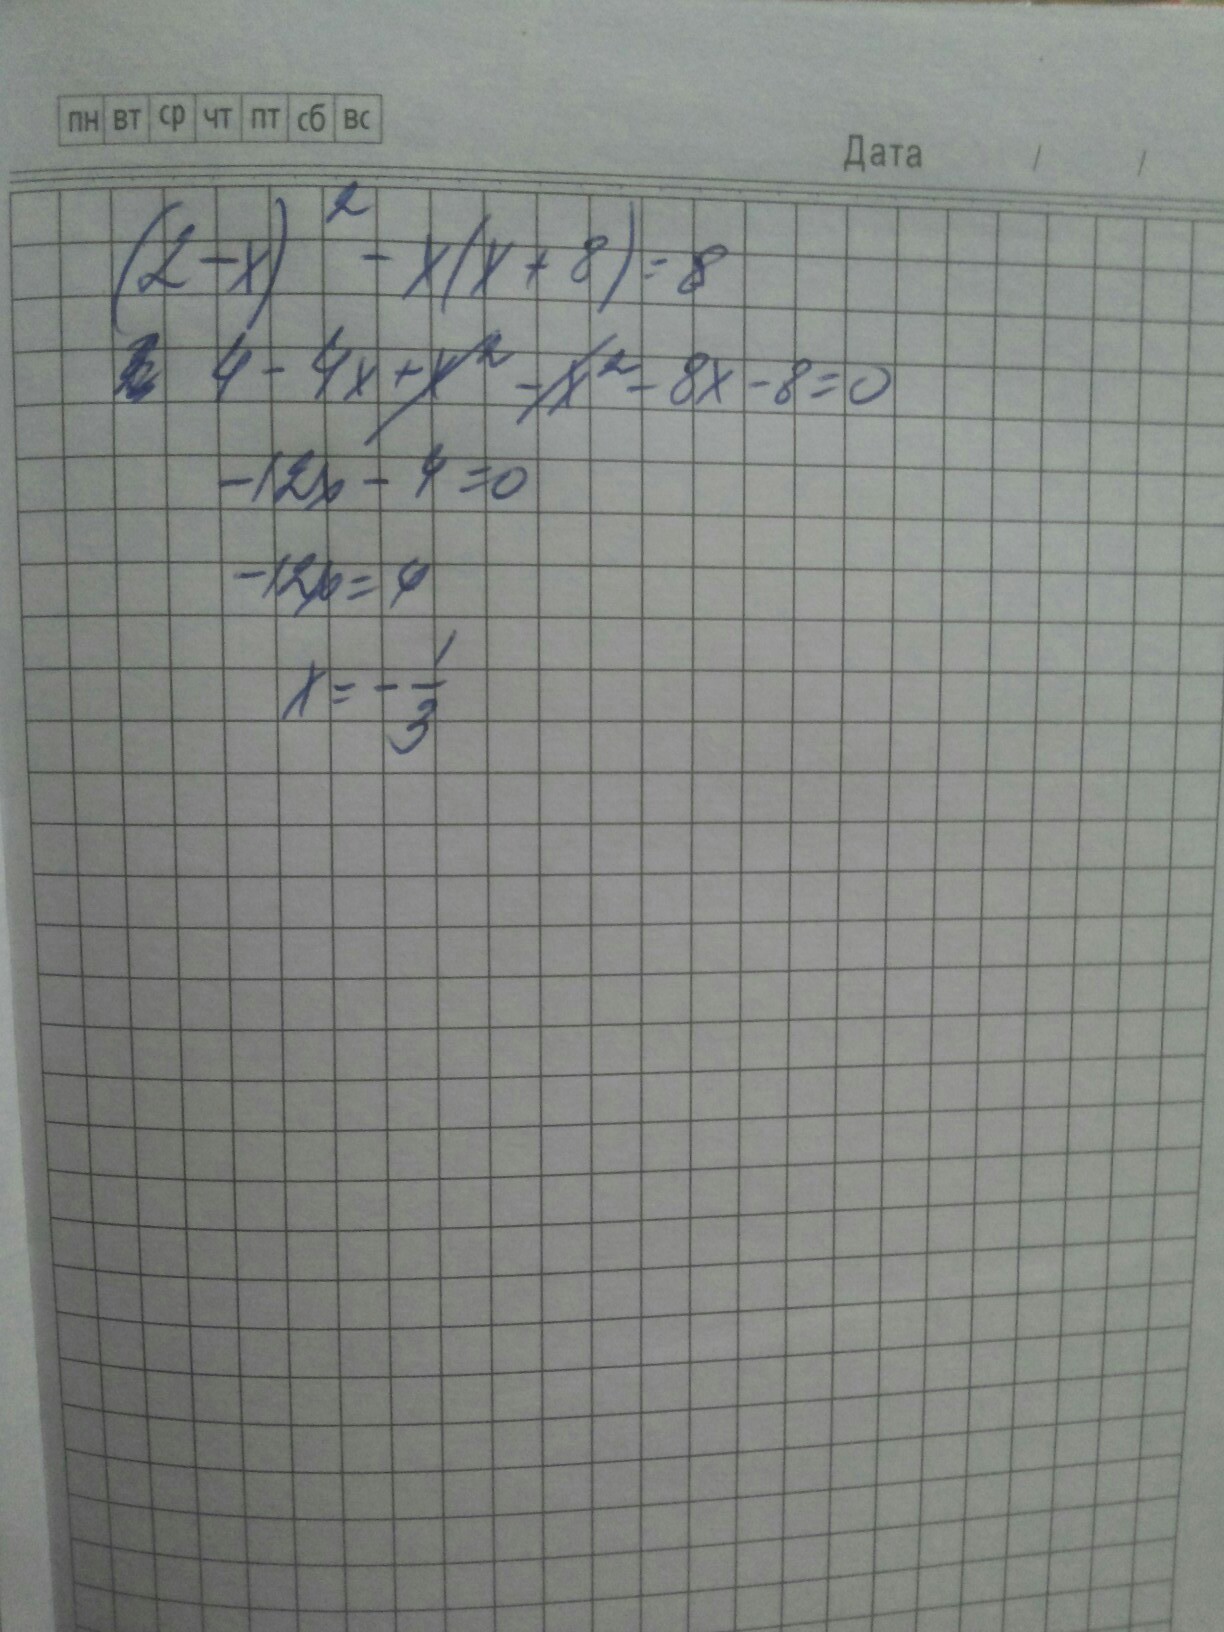 пн вт ср чт пт сб вс
Дата / /
(2-x)² - x(x+8)=8
4 - 4x + x² - x² - 8x - 8 = 0
-12x - 4 = 0
-12x = 4
x = -1/3